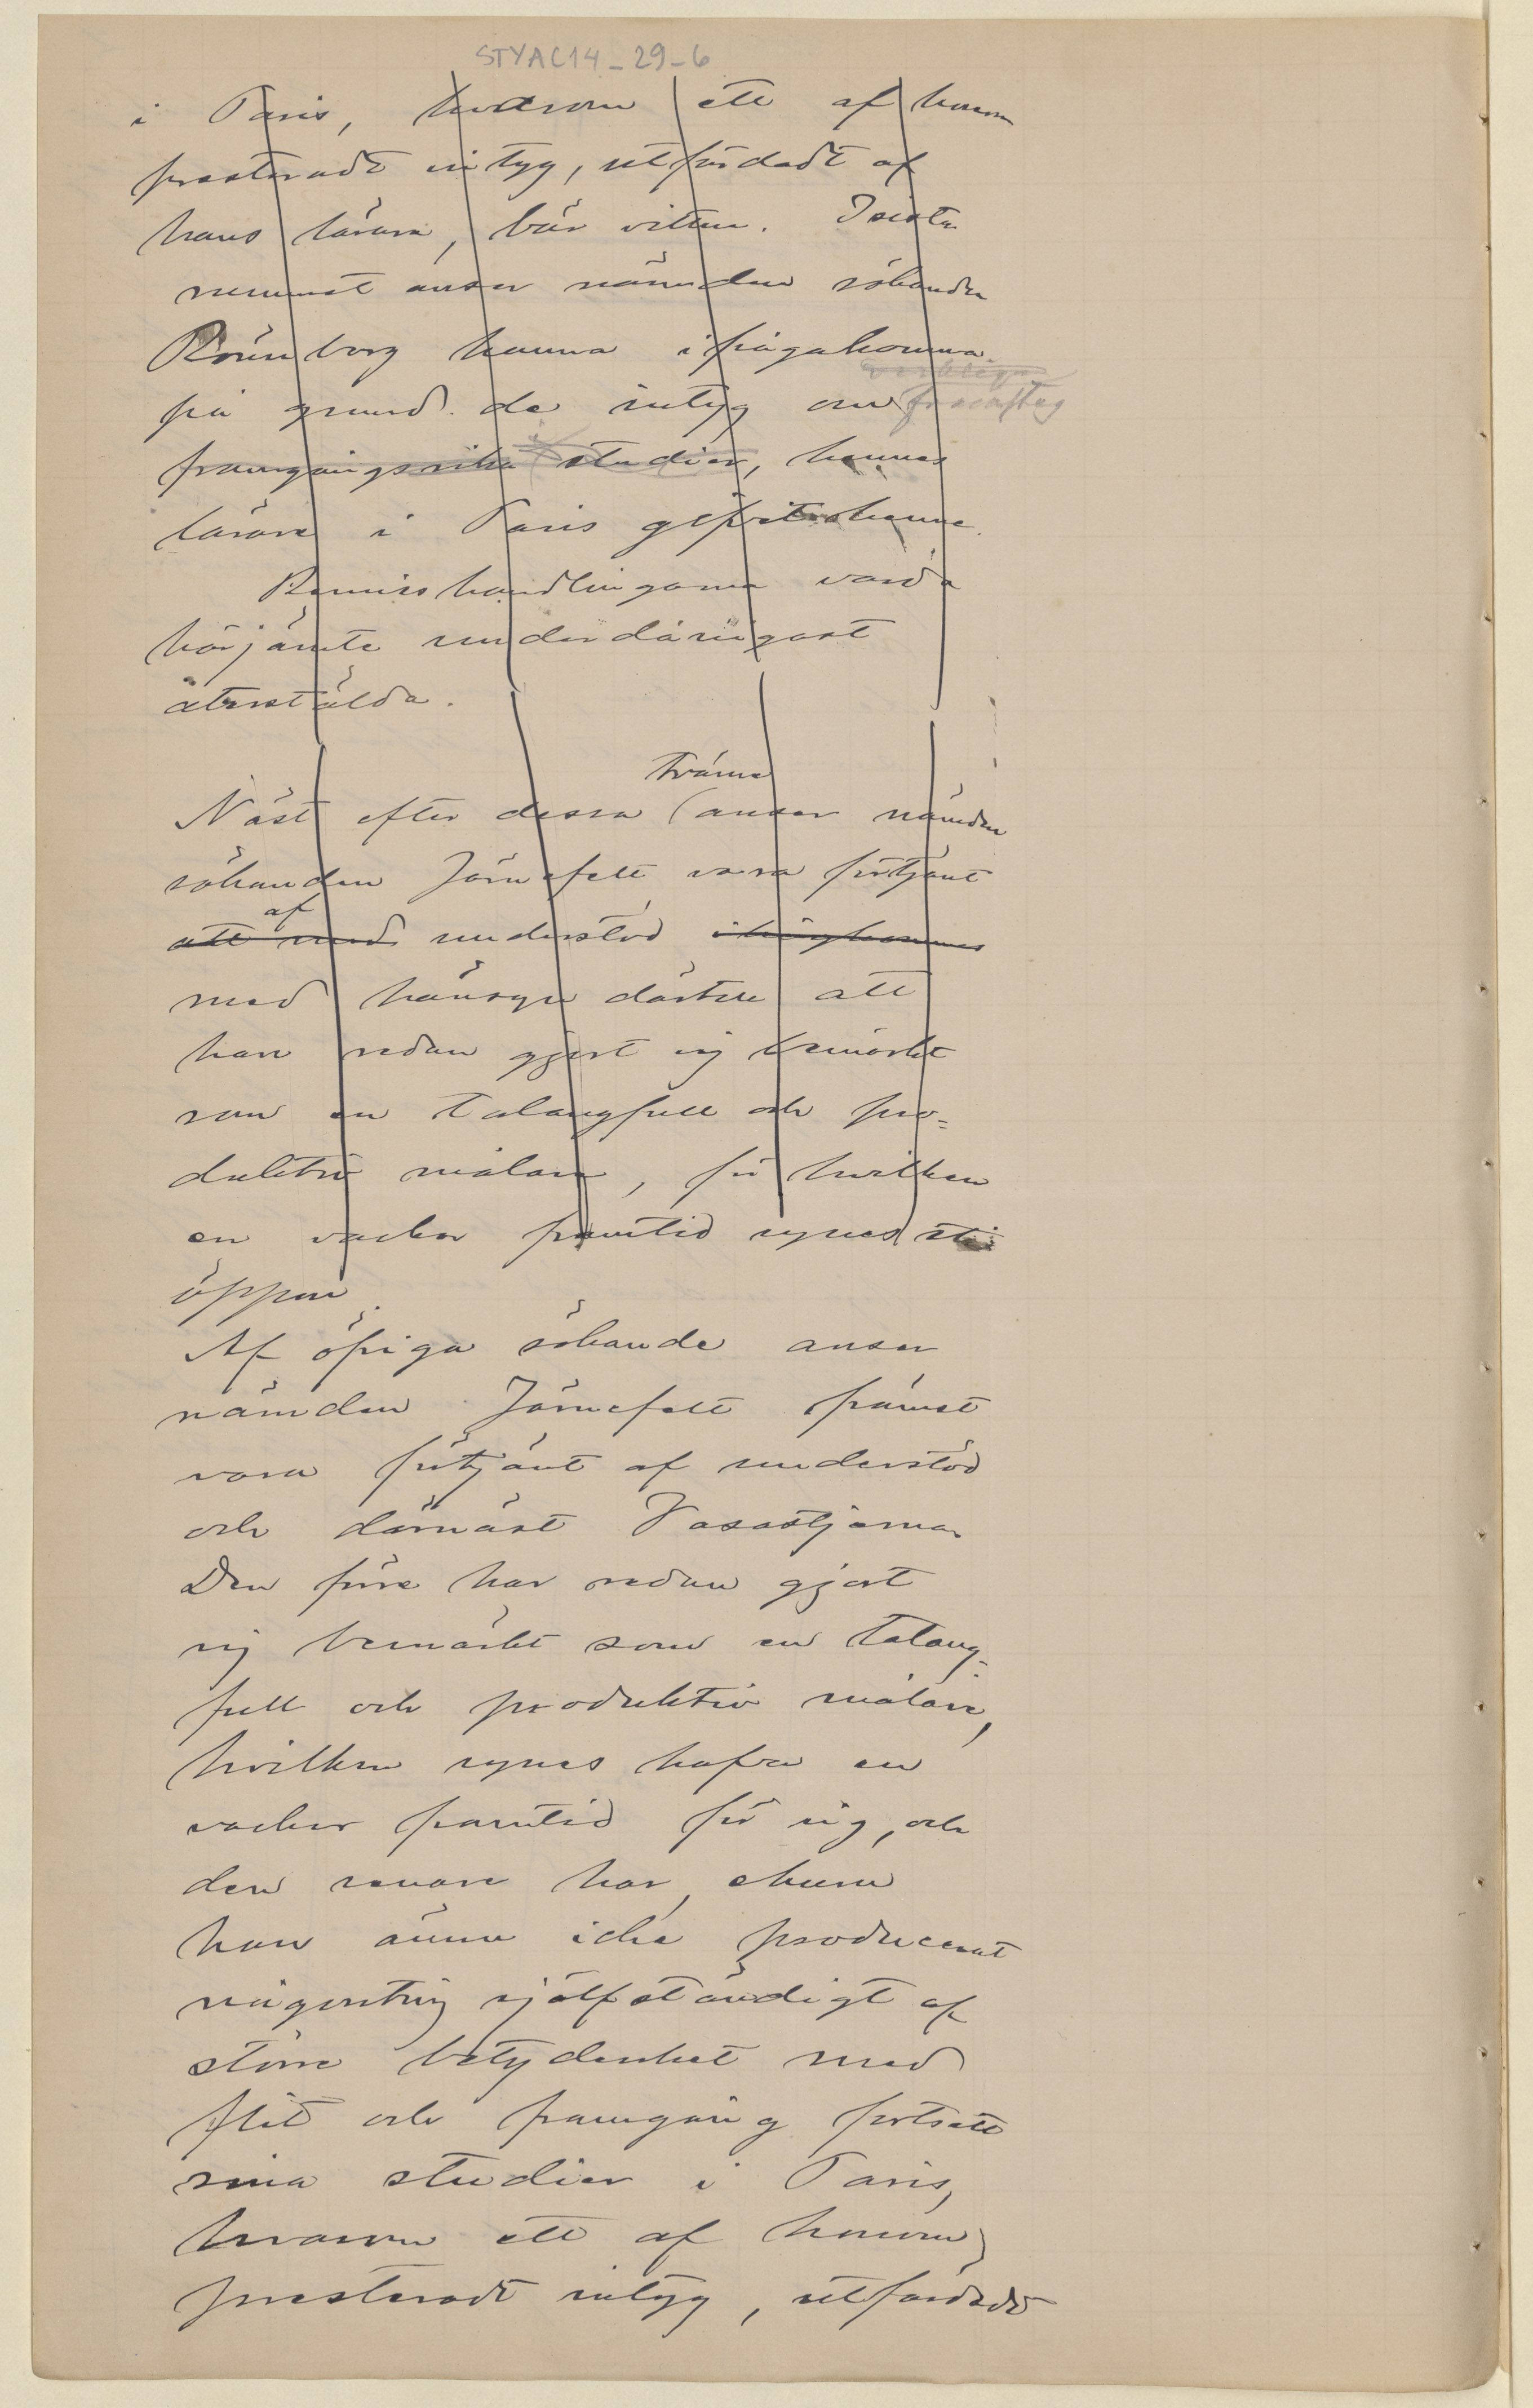 STYAC14_29_6
i Paris, hvarom ett af honom
presteradt intyg, utfärdadt af
hans lärare, bär vittne. I sista
rummet anser nämnden sökanden
Rönnberg kunna ifrågakomma
på grund de intyg om framsteg
framgångsrika studier, hennes
lärare i Paris gifvit henne.
Remisshandlingarna varda
härjämte underdånigast
återstälda.
tvänne
Näst efter dessa (anser nämden
sökanden Järnefelt vara förtjänt
af
att med understöd ihågkommas
med hänsyn därtill att
han redan gjort sig bemärkt
som en talangfull och pro-
duktiv målare, för hvilken
en vacker framtid synes stå
öppen.
Af öfriga sökande anser
nämden Järnefelt främst
vara förtjänt af understöd
och därnäst Vasastjerna
Den förre har redan gjort
sig bemärkt som en talang-
full och produktiv målare,
hvilken synes hafva en
vacker framtid för sig, och
den senare har, ehuru
han ännu icke producerat
någonting sjelfständigt af
större betydenhet med
flit och framgång fortsatt
sina studier i Paris,
hvarom ett af honom
presteradt intyg, utfärdadt